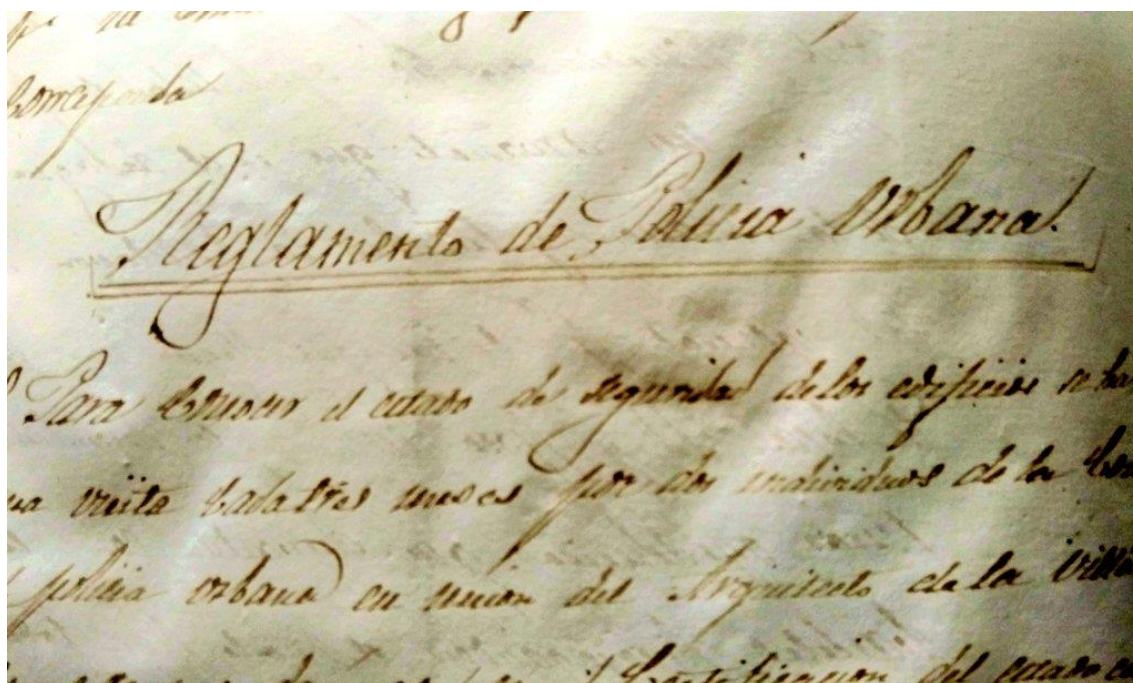 corresponda
Reglamento de Policia Urbana.
Para conocer el estado de seguridad de los edificios se ha
visita cada tres meses por dos individuos de la
policia urbana en union del Arquitecto de la villa
Certificacion del estado